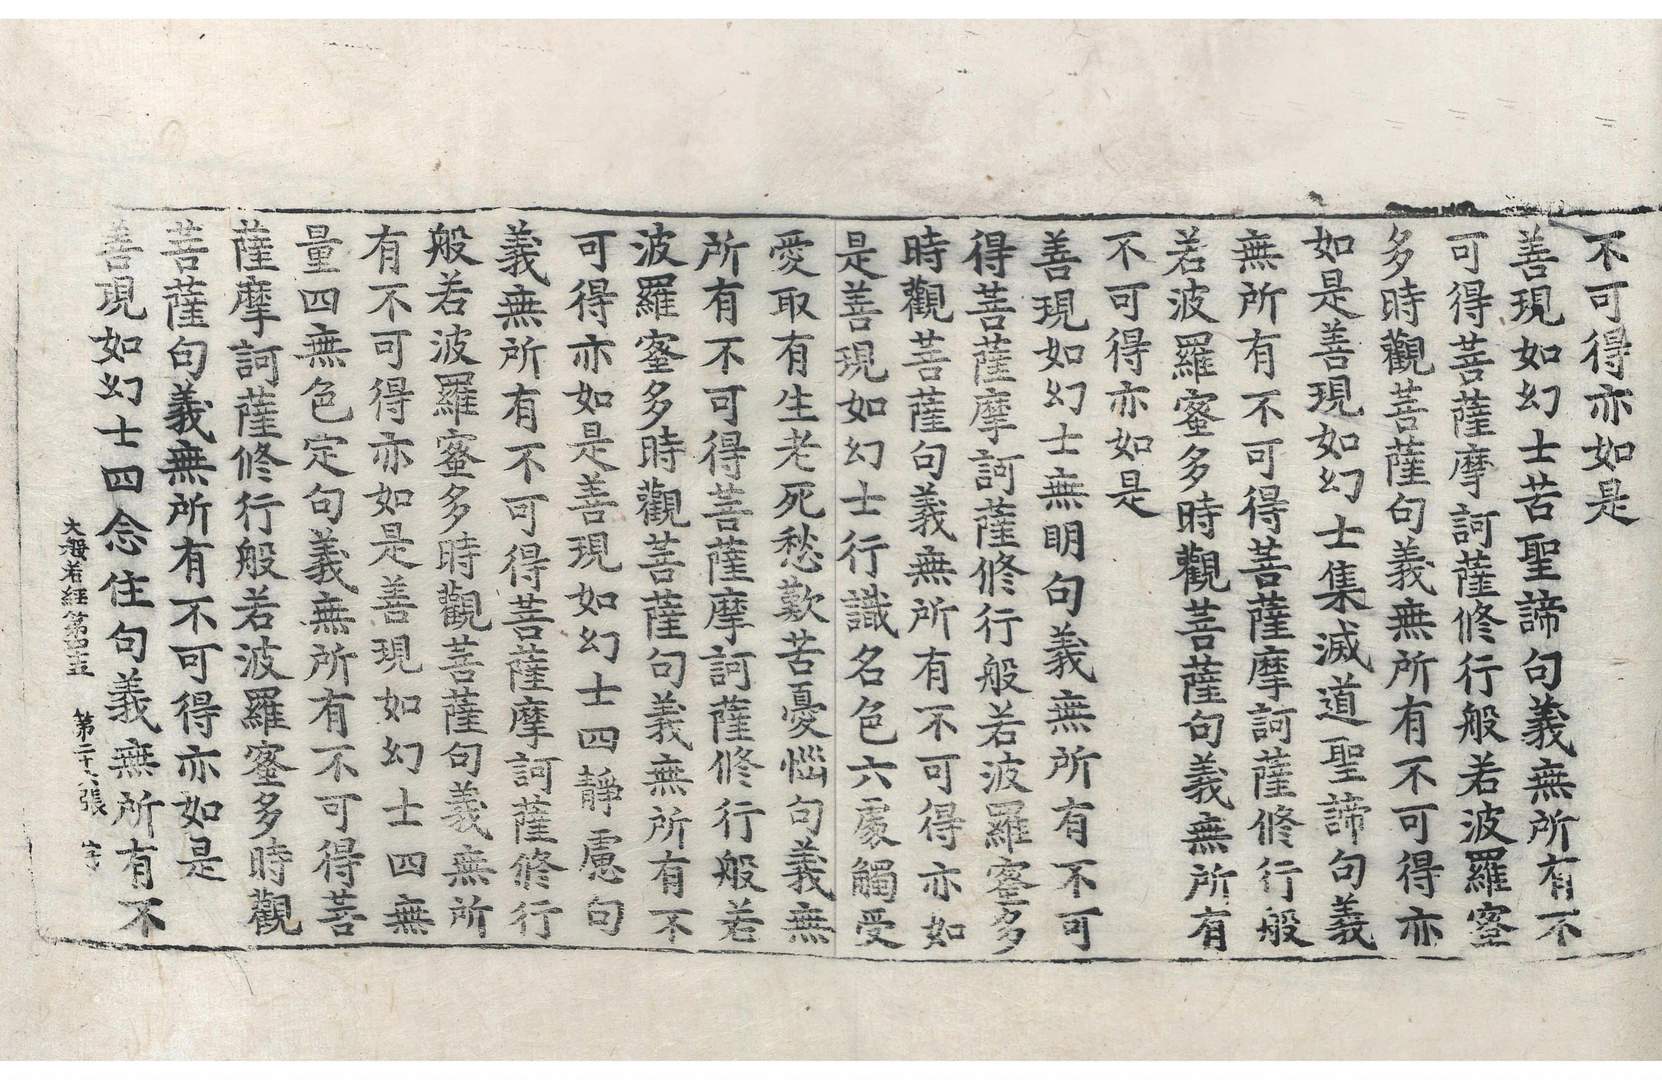 不可得亦如是
善現如幻士苦聖諦句義無所有不
可得菩薩摩訶薩修行般若波羅蜜
多時觀菩薩句義無所有不可得亦
如是善現如幻士集滅道聖諦句義
無所有不可得菩薩摩訶薩修行般
若波羅蜜多時觀菩薩句義無所有
不可得亦如是
善現如幻士無明句義無所有不可
得菩薩摩訶薩修行般若波羅蜜多
時觀菩薩句義無所有不可得亦如
是善現如幻士行識名色六處觸受
愛取有生老死愁歎苦憂惱句義無
所有不可得菩薩摩訶薩修行般若
波羅蜜多時觀菩薩句義無所有不
可得亦如是善現如幻士四靜慮句
義無所有不可得菩薩摩訶薩修行
般若波羅蜜多時觀菩薩句義無所
有不可得亦如是善現如幻士四無
量四無色定句義無所有不可得菩
薩摩訶薩修行般若波羅蜜多時觀
菩薩句義無所有不可得亦如是
善現如幻士四念住句義無所有不
大般若經第四十五 第二十六張